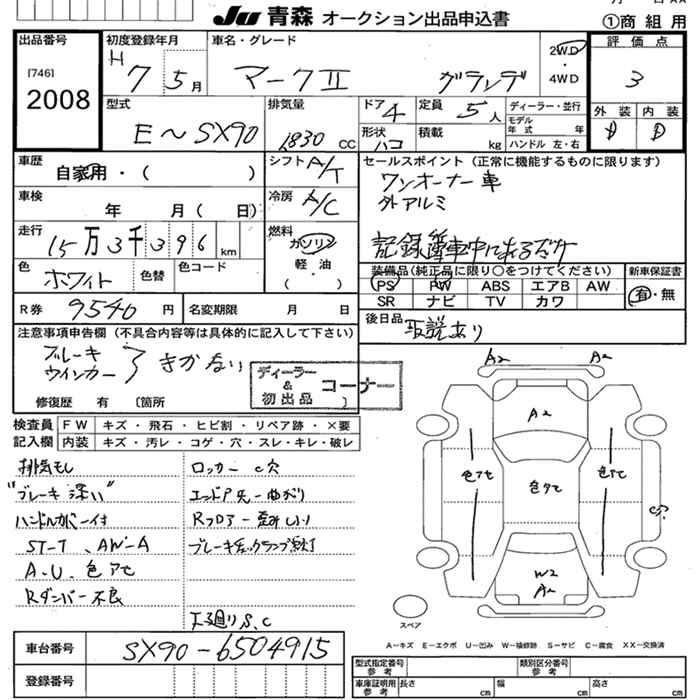 JU 青森 オークション出品申込書
①商 組 用
出品番号
[746]
2008
初度登録年月
H 7 5月
車名・グレード
マークⅡ グランデ
2WD
・
4WD
評 価 点
3
外 装 内 装
D D
型式
E〜SX90
排気量
1830 CC
ドア 4
形状 ハコ
定員 5人
積載 kg
ディーラー・並行
モデル年式 年
ハンドル 左・右
車歴
自家用・( )
シフト A/T
セールスポイント(正常に機能するものに限ります)
ワンオーナー車
外アルミ
記録簿車中にあるだけ
車検
年 月( 日)
冷房 A/C
走行
15万3千396km
燃料
ガソリン
軽・油
( )
色
ホワイト
色替
色コード
装備品(純正品に限り○をつけてください)
PS PW ABS エアB AW
SR ナビ TV カワ
新車保証書
有・無
R券 9540円
名変期限 月 日
後日品
取説あり
注意事項申告欄(不具合内容等は具体的に記入して下さい)
ブレーキ
ウインカー
きかない
修復歴 有 〔箇所 〕
ディーラー
&
初出品
コーナー
検査員
記入欄
FW キズ・飛石・ヒビ割・リペア跡・×要
内装 キズ・汚レ・コゲ・穴・スレ・キレ・破レ
排気モレ
"ブレーキ深い"
ハンドルカバー付
ST-T、AW-A
A.U. 色アセ
Rダンパー不良
ロッカー C穴
エンドP先一曲がり
Rフロアー歪み
ブレーキチェックランプ点灯
下廻りS.C
A2 A2
A2
色アセ
色アセ
色アセ
W2
A2
スペア
A−キズ E−エクボ U−凹み W−補修跡 S−サビ C−腐食 XX−交換済
車台番号
SX90-6504915
登録番号
型式指定番号
参考
類別区分番号
参考
車庫証明用
参考
長さ cm
幅 cm
高さ cm